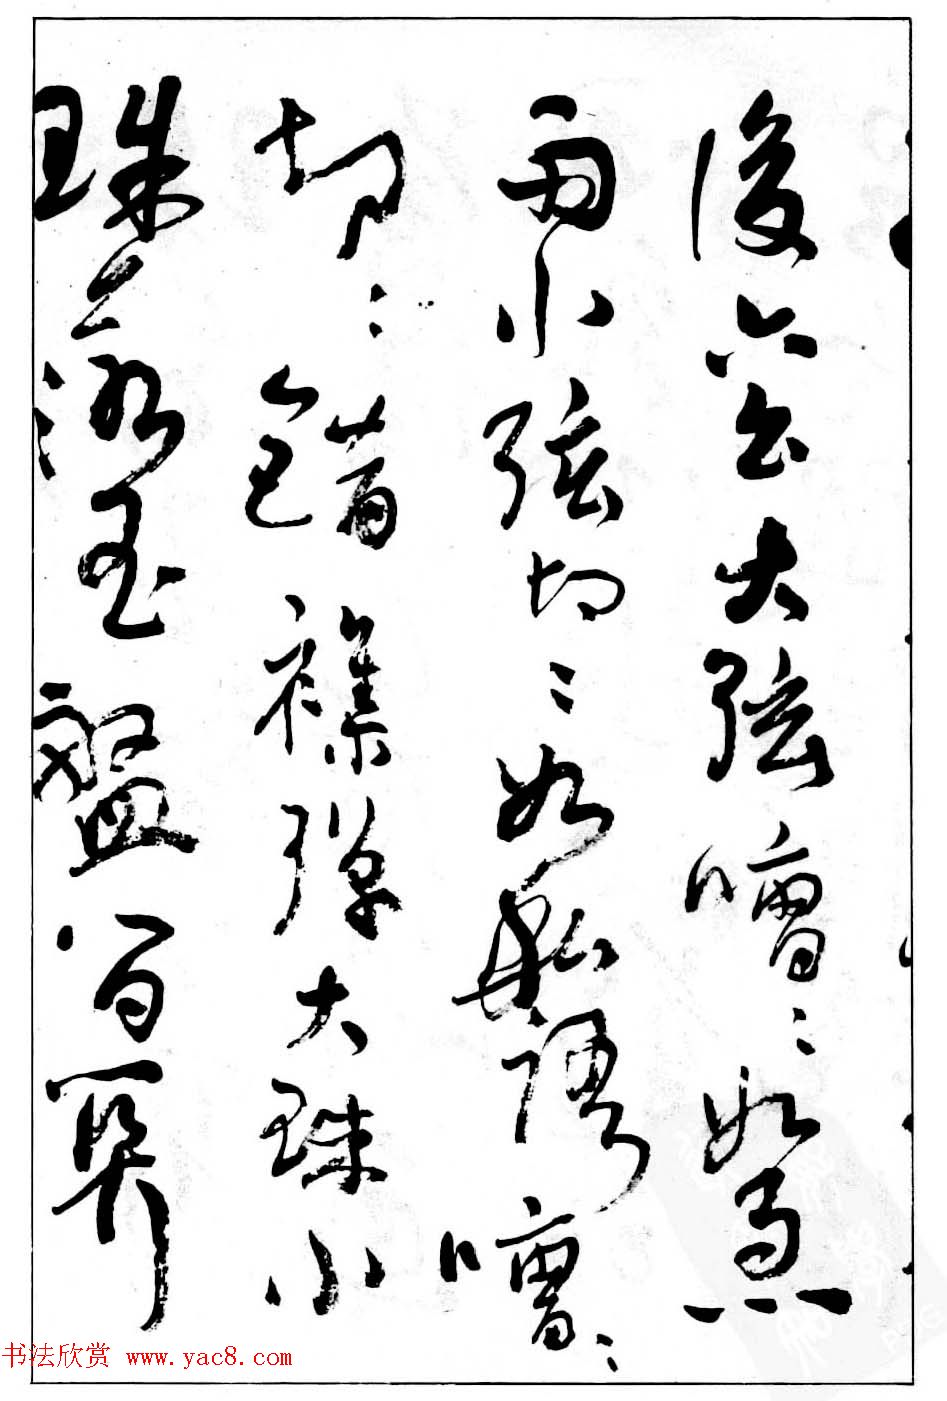 後六幺大弦嘈〻如急
雨小弦切〻如私語嘈〻
切〻錯襍彈大珠小
珠落玉盤間關
书法欣赏 www.yac8.com